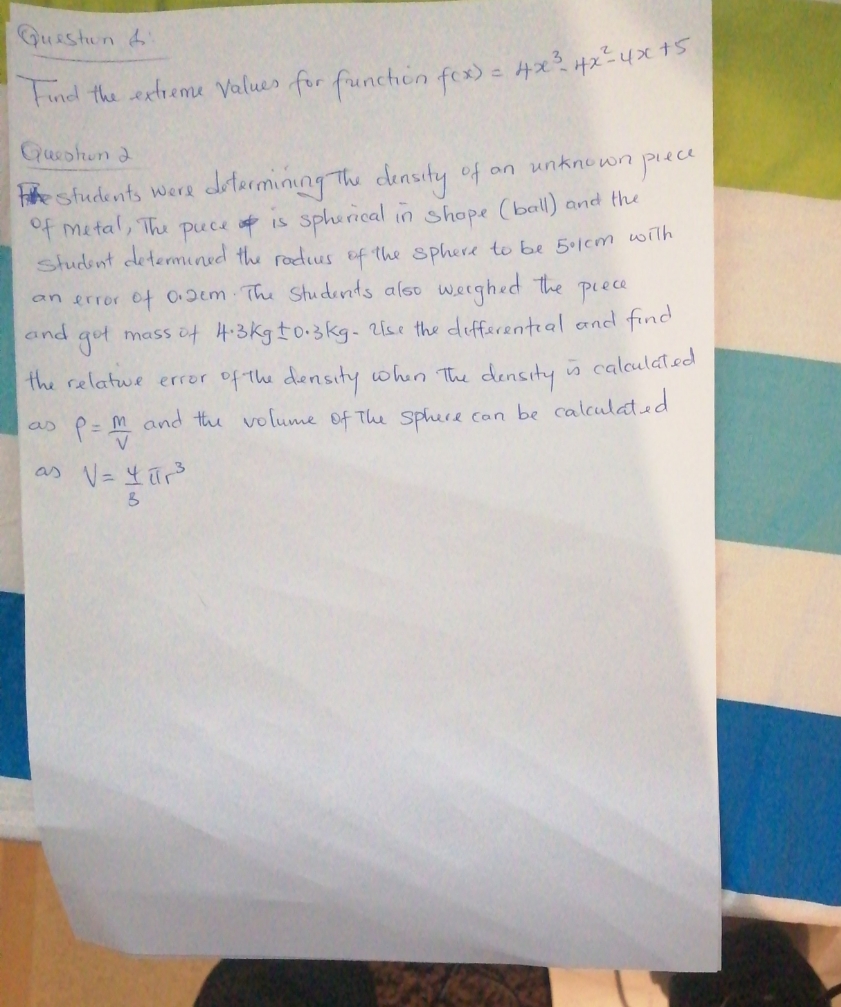 Question 1:
Find the extreme values for function f(x) = 4x³ - 4x² - 4x + 5
Question 2
students were determining the density of an unknown piece
of metal, The piece is spherical in shape (ball) and the
student determined the radius of the sphere to be 5.1cm with
an error of 0.2cm. The students also weighed the piece
and got mass of 4.3kg ± 0.3kg. Use the differential and find
the relative error of the density when the density is calculated
as ρ = m/V and the volume of the sphere can be calculated
as V = 4/3 πr³